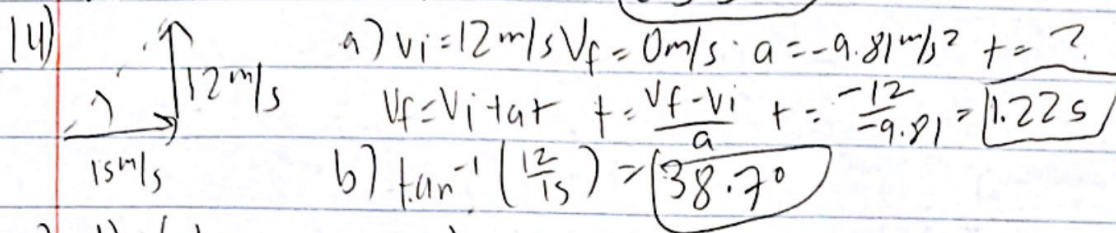 14)
12 m/s
15 m/s
a) Vi = 12 m/s Vf = 0 m/s a = -9.81 m/s² t = ?
Vf = Vi + at t = Vf - Vi / a t = -12 / -9.81 = 1.22 s
b) tan⁻¹ (12/15) = 38.7°